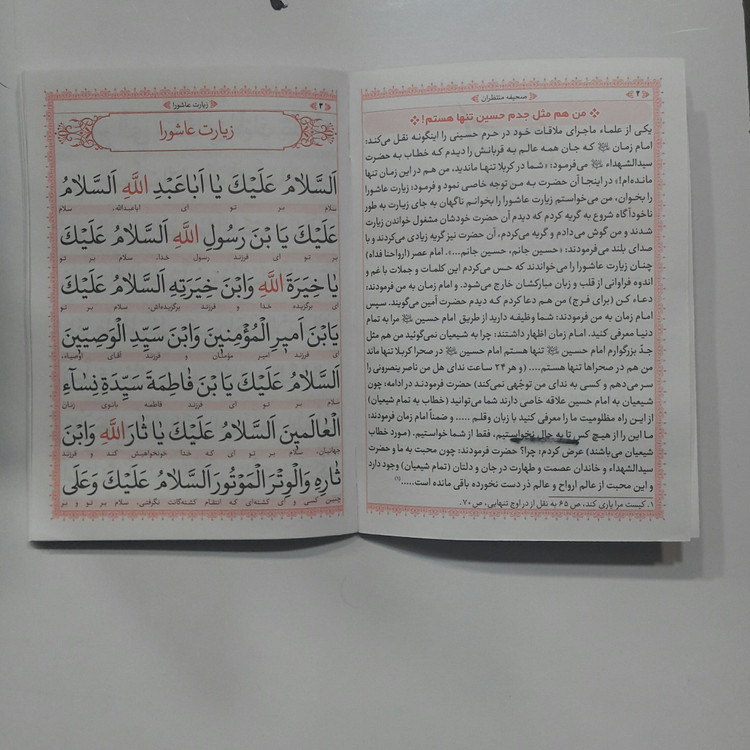 ۲
صحیفه منتظران
من هم مثل جدم حسین تنها هستم!
یکی از علماء ماجرای ملاقات خود در حرم حسینی را اینگونه نقل می‌کند:
امام زمان ﷺ که جان همه عالم به قربانش را دیدم که خطاب به حضرت
سیدالشهداء می‌فرمود: «شما در کربلا تنها ماندید، من هم در این زمان تنها
مانده‌ام!» در اینجا آن حضرت به من توجه خاصی نمود و فرمود: زیارت عاشورا
را بخوان، من می‌خواستم زیارت عاشورا را بخوانم ناگهان به جای زیارت به طور
ناخودآگاه شروع به گریه کردم که دیدم آن حضرت خودشان مشغول خواندن زیارت
شدند و من گوش می‌دادم و گریه می‌کردم، آن حضرت نیز گریه زیادی می‌کردند و با
صدای بلند می‌فرمودند: «حسین جانم، حسین جانم...»، امام عصر (ارواحنا فداه)
چنان زیارت عاشورا را می‌خواندند که حس می‌کردم این کلمات و جملات با غم و
اندوه فراوانی از قلب و زبان مبارکشان خارج می‌شود. و امام زمان به من فرمودند:
دعاء کن (برای فرج) من هم دعا کردم که دیدم حضرت آمین می‌گویند. سپس
امام زمان به من فرمودند: شما وظیفه دارید از طریق امام حسین مرا به تمام
دنیا معرفی کنید. امام زمان اظهار داشتند: چرا به شیعیان نمی‌گوئید من هم مثل
جدّ بزرگوارم امام حسین تنها هستم امام حسین در صحرا کربلا تنها ماند
من هم در صحراها تنها هستم.... (و هر ۲۴ ساعت ندای هل من ناصر ینصرونی را
سر می‌دهم و کسی به ندای من توجّهی نمی‌کند) حضرت فرمودند در ادامه: چون
شیعیان به امام حسین علاقه خاصی دارند شما می‌توانید (خطاب به تمام شیعیان)
از این راه مظلومیت ما را معرفی کنید با زبان و قلم ..... و ضمناً امام زمان فرمودند:
ما این را از هیچ کس تا به حال نخواستیم، فقط از شما خواستیم. (مورد خطاب
شیعیان می‌باشند) عرض کردم: چرا؟ حضرت فرمودند: چون محبت به ما و حضرت
سیدالشهداء و خاندان عصمت و طهارت در جان و دلتان (تمام شیعیان) وجود دارد
و این محبت از عالم ارواح و عالم ذر دست نخورده باقی مانده است.....(۱)
۱. کیست مرا یاری کند، ص ۶۵ به نقل از در اوج تنهایی، ص ۷۰.
زیارت عاشورا
۳
زیارت عاشورا
اَلسَّلامُ عَلَیْكَ یٰا اَباعَبْدِ اللَّهِ اَلسَّلامُ
سلام بر تو ای اباعبدالله، سلام
عَلَیْكَ یَا بْنَ رَسُولِ اللَّهِ اَلسَّلامُ عَلَیْكَ
بر تو ای فرزند رسول خدا، سلام بر تو
یٰا خِیَرَةَ اللَّهِ وَابْنَ خِیَرَتِهِ اَلسَّلامُ عَلَیْكَ
ای برگزیده خدا و فرزند برگزیده‌اش، سلام بر تو
یَابْنَ اَمیرِ الْمُؤْمِنینَ وَابْنَ سَیِّدِ الْوَصِیّینَ
ای فرزند امیر مؤمنان و فرزند آقای اوصیاء،
اَلسَّلامُ عَلَیْكَ یَا بْنَ فاطِمَةَ سَیِّدَةِ نِسٰاءِ
سلام بر تو ای فرزند فاطمه بانوی زنان
الْعٰالَمینَ اَلسَّلامُ عَلَیْكَ یٰا ثٰارَ اللَّهِ وَابْنَ
جهانیان، سلام بر تو ای که خدا خونخواهیش کند و فرزند
ثٰارِهِ وَالْوِتْرَ الْمَوْتُورَ اَلسَّلامُ عَلَیْكَ وَعَلَی
چنین کسی و ای کشته‌ای که انتقام کشته‌گانت نگرفتی، سلام بر تو و بر